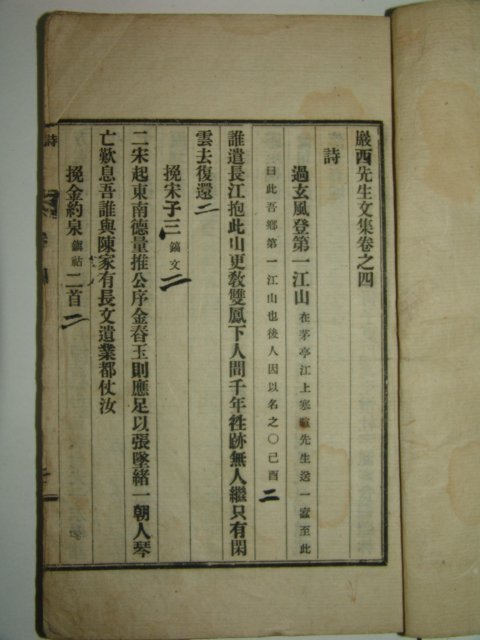 巖西先生文集卷之四
詩
過玄風登第一江山 在茅亭江上寒暄先生送一蠹至此
曰此吾鄉第一江山也後人因以名之○己酉 二
誰遣長江抱此山更敎雙鳳下人間千年徃跡無人繼只有閑
雲去復還 二
挽宋子三 鎬文 二
二宋起東南德量推公序金舂玉則應足以張墜緖一朝人琴
亡歎息吾誰與陳家有長文遺業都仗汝
挽金約泉 鎭祜 二首 二
詩